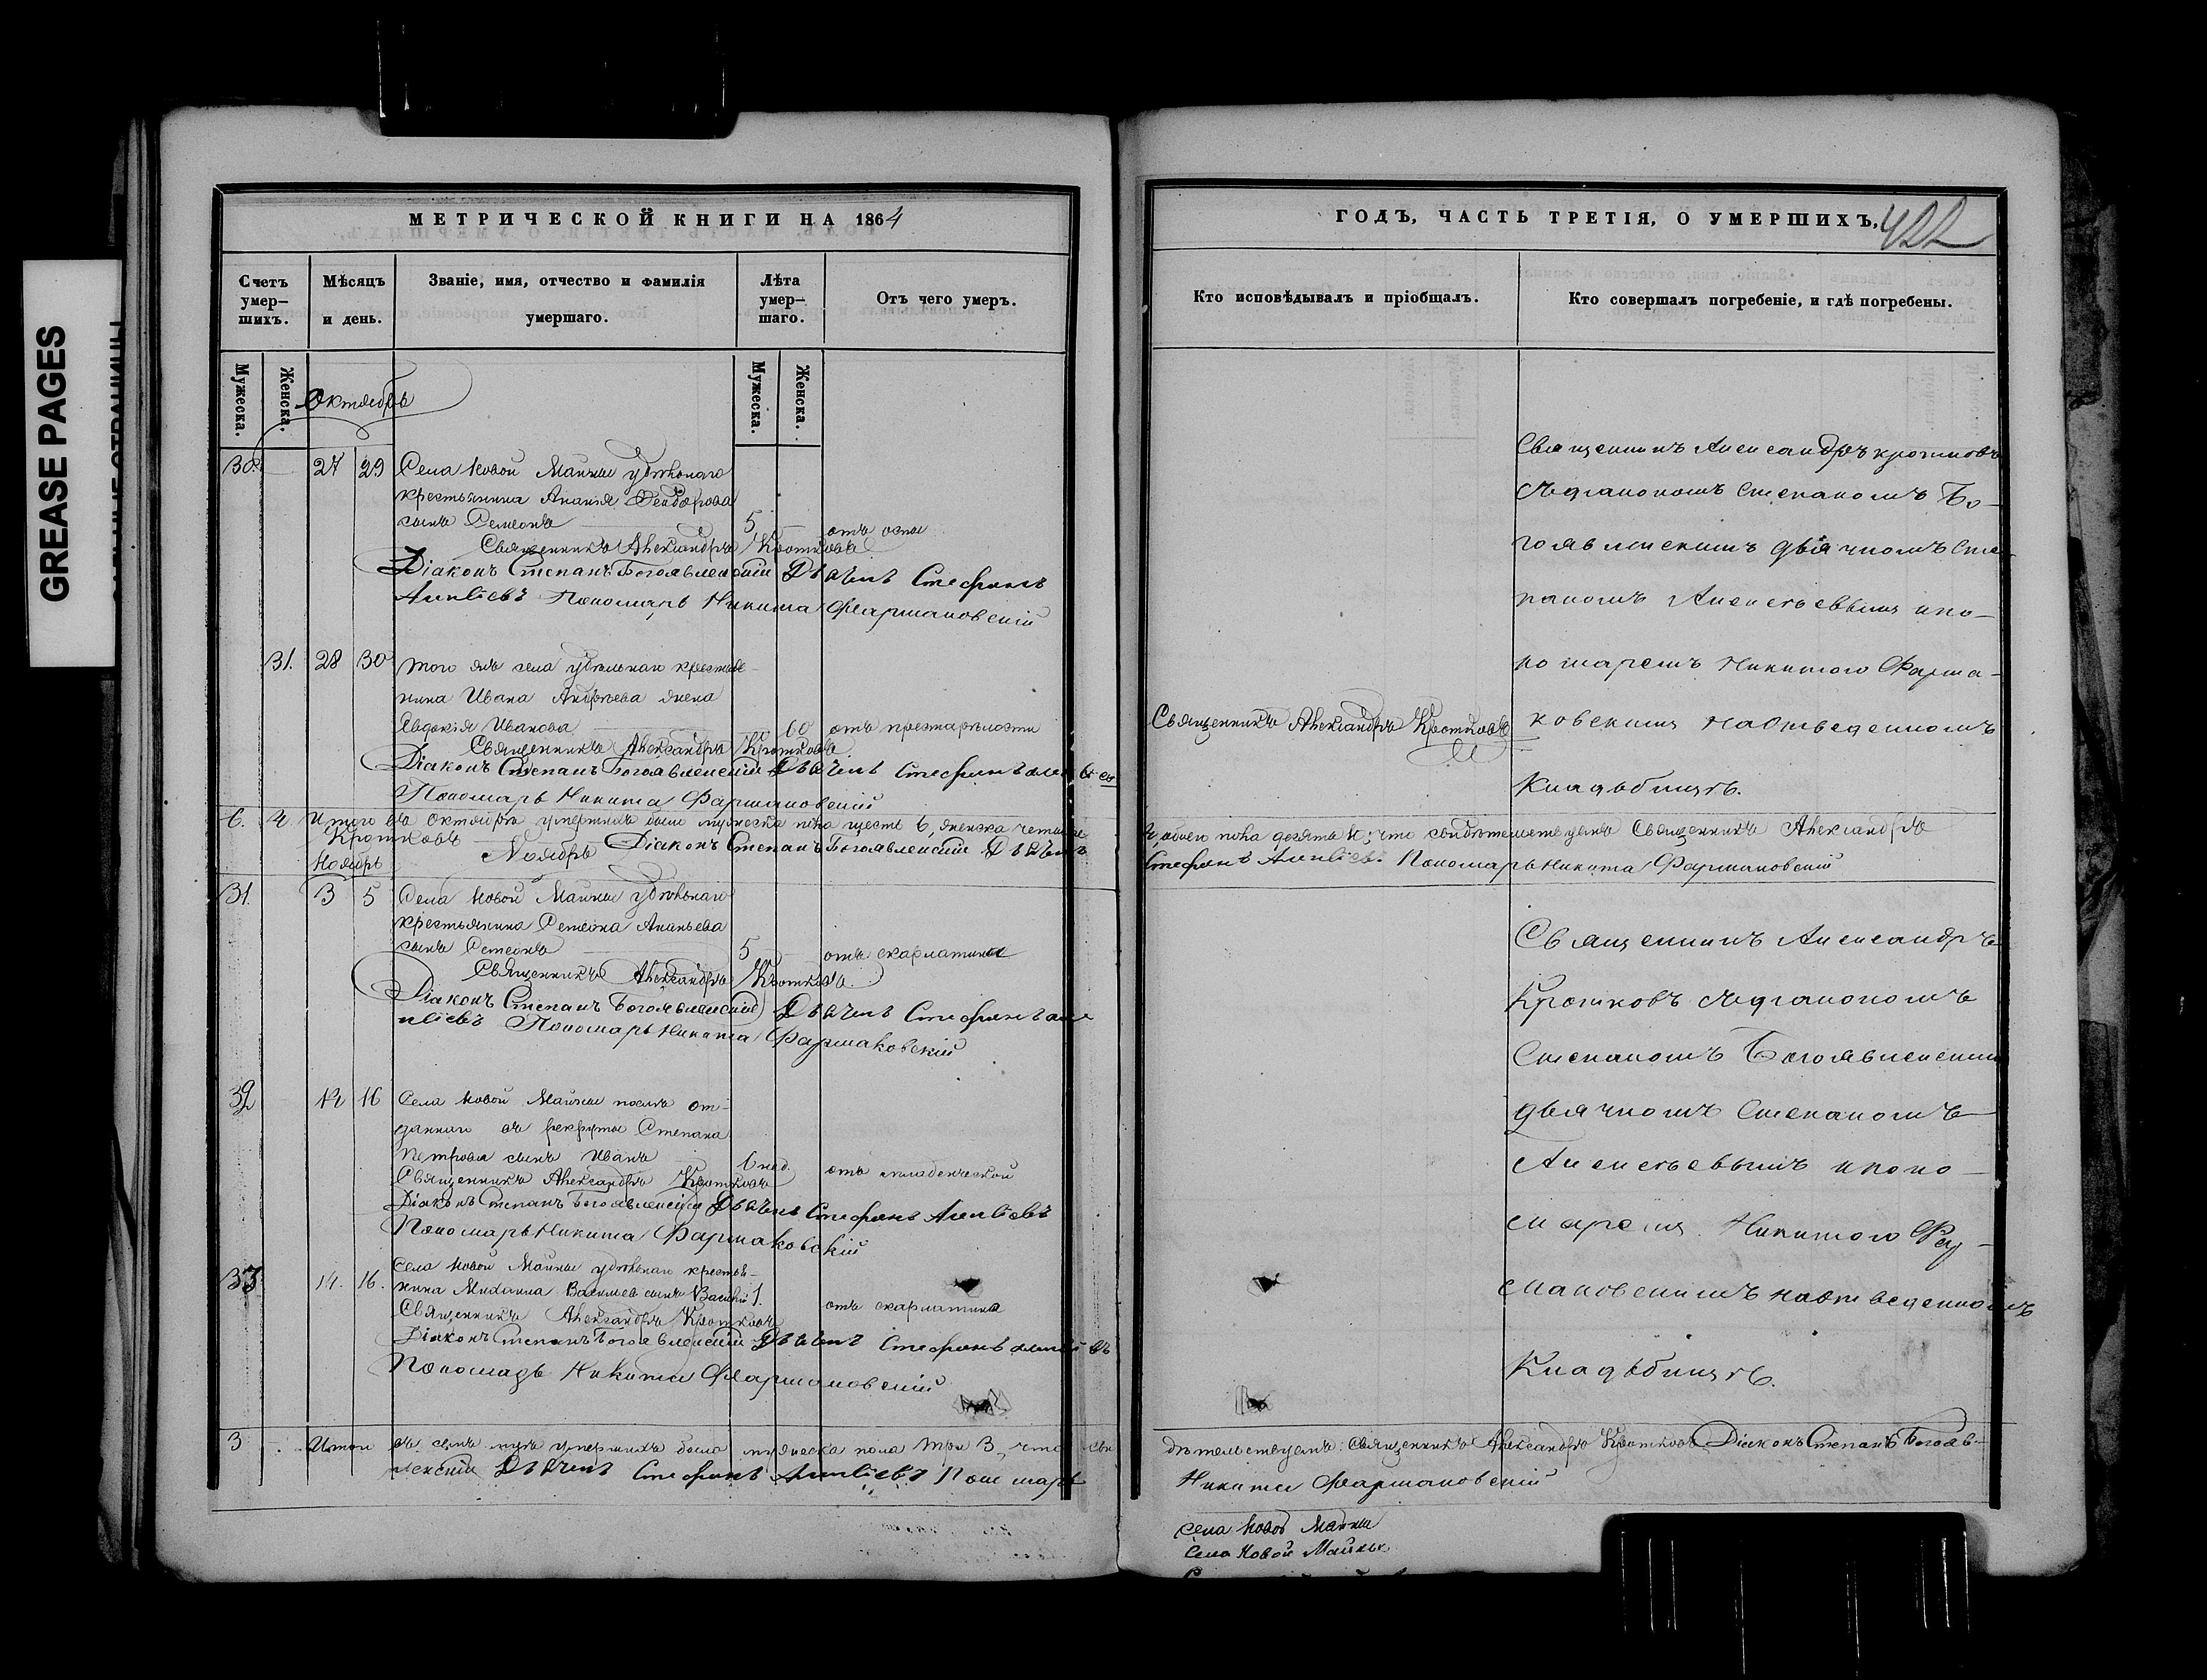 GREASE PAGES
МЕТРИЧЕСКОЙ КНИГИ НА 1864
Счетъ умер-
шихъ.
Мѣсяцъ
и день.
Званіе, имя, отчество и фамилія
умершаго.
Лѣта
умер-
шаго.
Отъ чего умеръ.
Мужеска.
Женска.
Мужеска.
Женска.
Октябрь
30. 27 29 Села Новой Майны удѣльнаго
крестьянина Ананія Феодорова
сынъ Семеонъ 5 отъ оспы
Священникъ Александръ Кротковъ
Діаконъ Степанъ Богоявленскій Дьячекъ Стефанъ
Пономарь Никита Фармаковскій
31. 28 30 того же села удѣльнаго крестья-
нина Ивана Андреева жена
Евдокія Иванова 60 отъ престарѣлости
Священникъ Александръ Кротковъ
Діаконъ Степанъ Богоявленскій Дьячекъ Стефанъ
Пономарь Никита Фармаковскій
6. 4. Итого въ Октябрѣ умершихъ было мужеска пола шесть 6, женска четыре
Кротковъ Діаконъ Степанъ Богоявленскій Дьячекъ
Ноябрь Ноябрь
31. 3 5 Села Новой Майны удѣльнаго
крестьянина Семеона Ананьева
сынъ Семеонъ 5 отъ скарлатины
Священникъ Александръ Кротковъ
Діаконъ Степанъ Богоявленскій Дьячекъ Стефанъ
Пономарь Никита Фармаковскій
32 14 16 Села Новой Майны послѣ от-
даннаго въ рекруты Степана
Петрова сынъ Иванъ 6 нед. отъ младенческой
Священникъ Александръ Кротковъ
Діаконъ Степанъ Богоявленскій Дьячекъ Стефанъ
Пономарь Никита Фармаковскій
33 14. 16. Села Новой Майны удѣльнаго крестья-
нина Михаила Васильева сынъ Василій 1. отъ скарлатины
Священникъ Александръ Кротковъ
Діаконъ Степанъ Богоявленскій Дьячекъ Стефанъ
Пономарь Никита Фармаковскій
3 Итого умершихъ было мужеска пола три 3, что сви
ленскій Дьячекъ Стефанъ Пономарь
ГОДЪ, ЧАСТЬ ТРЕТІЯ, О УМЕРШИХЪ. 422
Кто исповѣдывалъ и пріобщалъ.
Кто совершалъ погребеніе, и гдѣ погребены.
Священникъ Александръ Кротковъ
съ діакономъ Степаномъ Бо-
гоявленскимъ дьячкомъ Сте-
паномъ Алексѣевымъ и по-
номаремъ Никитою Фарма-
Священникъ Александръ Кротковъ
ковскимъ на отведенномъ
Кладбищѣ.
4, обоего пола десять 10, что свидѣтельствуемъ Священникъ Александръ
Стефанъ Пономарь Никита Фармаковскій
Священникъ Александръ
Кротковъ съ діакономъ
Степаномъ Богоявленскимъ
дьячкомъ Степаномъ
Алексѣевымъ и поно-
маремъ Никитою Фар-
маковскимъ на отведенномъ
Кладбищѣ.
дѣтельствуемъ: Священникъ Александръ Кротковъ Діаконъ Степанъ Богояв-
Никита Фармаковскій
Села Новой Майны
Села Новой Майны